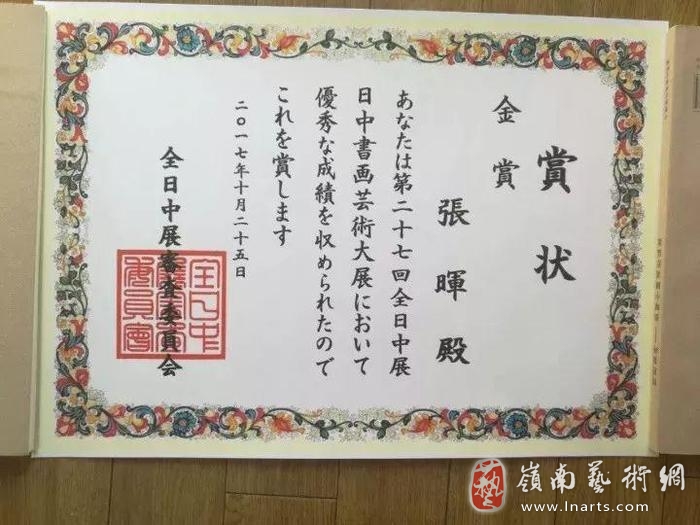 賞状
金賞
張暉殿
あなたは第二十七回全日中展
日中書画芸術大展において
優秀な成績を収められたので
これを賞します
二〇一七年十月二十五日
全日中展審査委員会
嶺南藝術網
www.lnarts.com